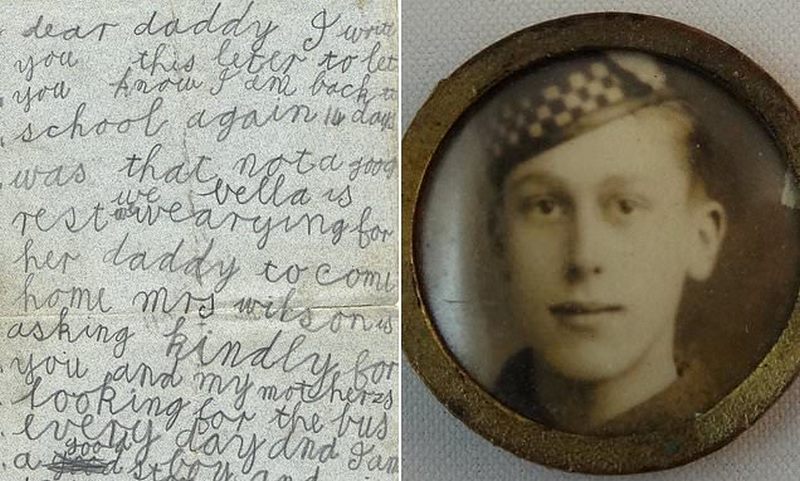 dear daddy I write
you this leter to let
you know I am back to
school again 14 days
was that not a good
rest we vella is
wearying for
her daddy to come
home mrs wilson is
asking kindly for
you and my motherzs
looking for the bus
every day and I am
a good boy and